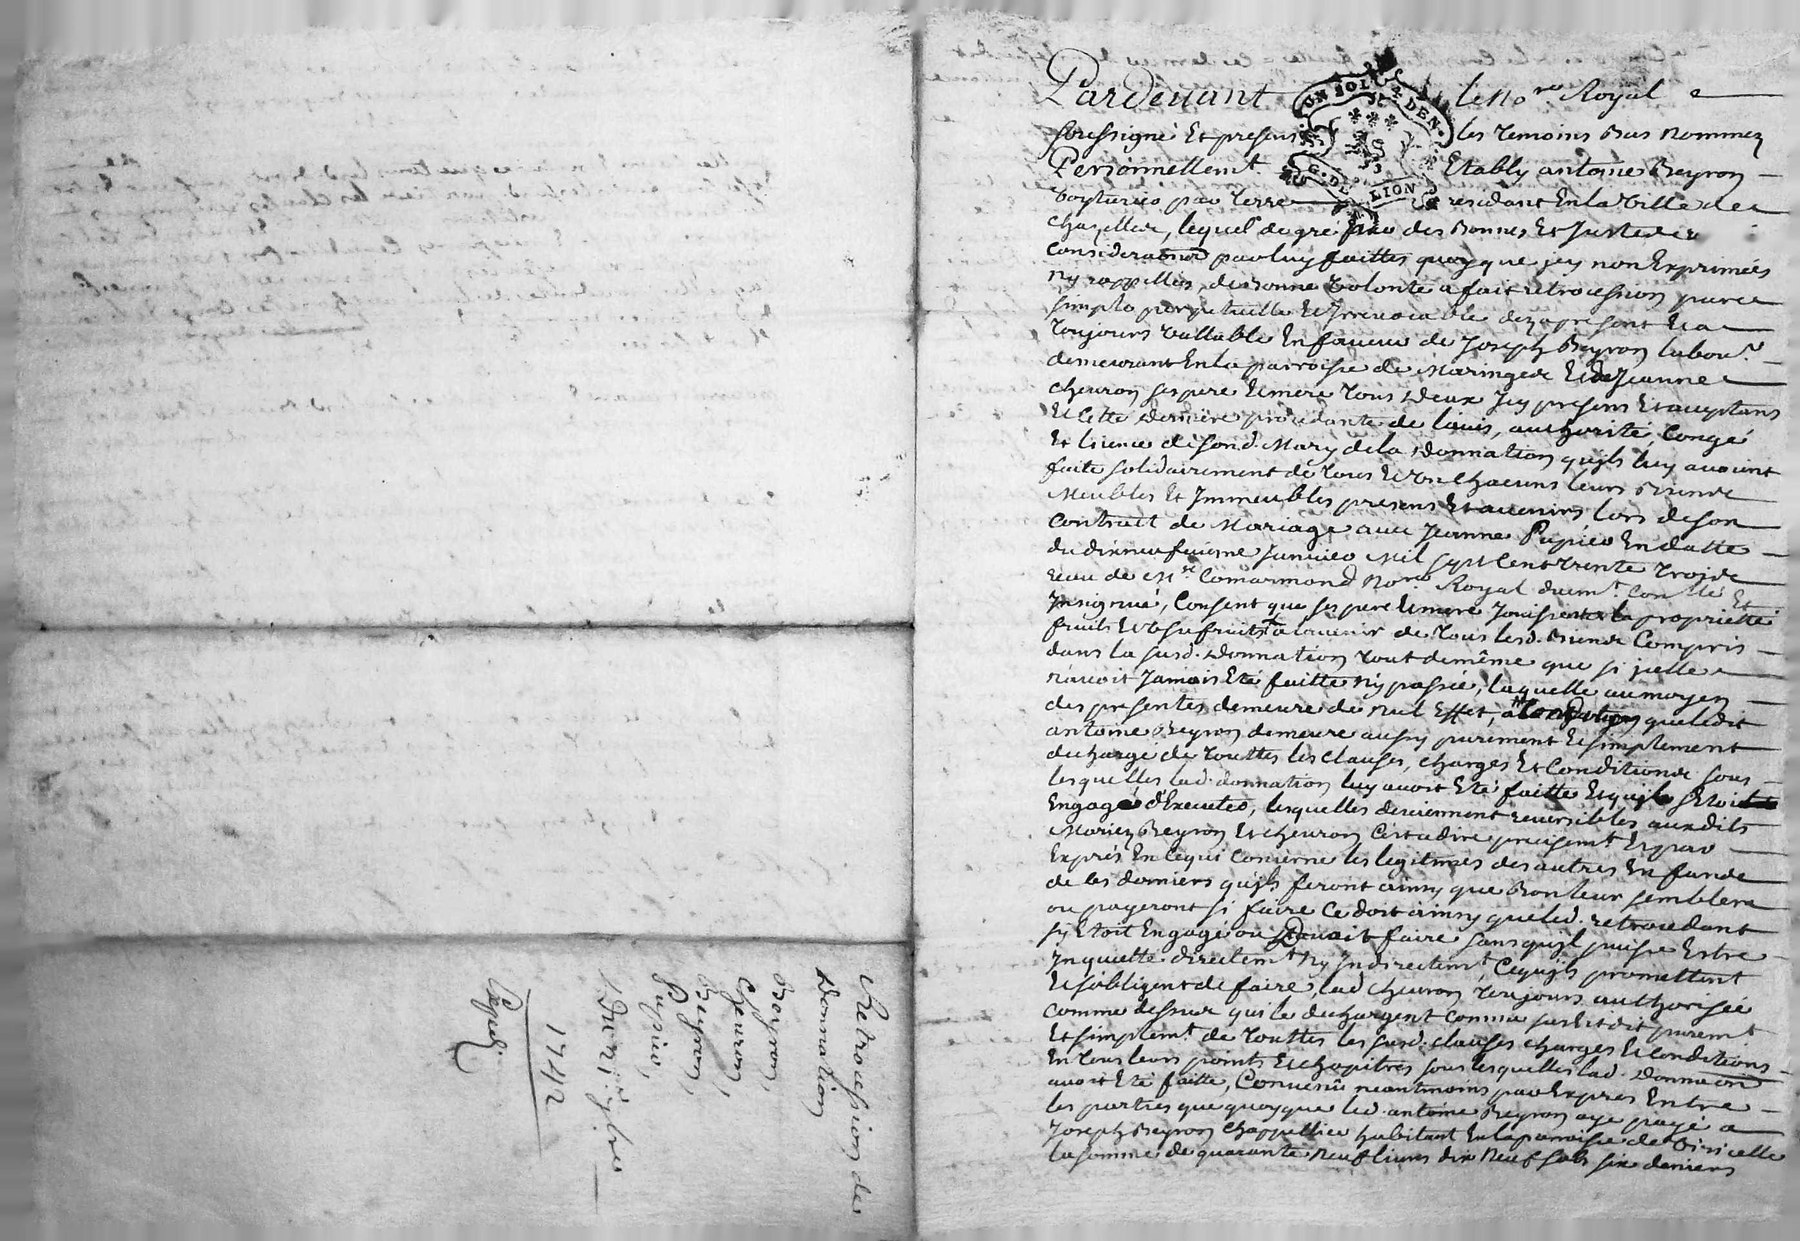 Retrocession de
Donnation
Beyron,
Cheuron,
Beyron,
Pupier,
Du 21 xbre
1742
Expedi.
UN SOL 4 DEN.
G. DE LION
Pardeuant le No.re Royal
soussigné Et presens les temoins Bas nommez
Personnellemt. Etably antoine Beyron
voyturier par terre residant En la ville de
Chazelles, lequel de gré pour des Bonnes Et Justes
Considerations par luy faittes quoy que jcy non Exprimées
ny rappellés, de Bonne volonté a fait retrocession pure
simple perpetuelle Et Jrreuocable dez a present Et a
toujours vallable En faueur de Joseph Beyron labour.
demeurant En la parroisse de Maringes Et de Jeanne
cheuron ses pere Et mere tous deux Jcy presens Et acceptans
Et Cette derniere procedante de lauis, authorité, Congé
Et licence de sond. Mary de la Donnation qu'jls luy auoient
faite solidairement de tous Et Vn Chacuns leurs Biens
Meubles Et Jmmeubles presens Et auenirs lors de son
Contrait de Mariage auec Jeanne Pupier En datte
du dixneufuieme Januier Mil sept Cent trente trois
recu de Me. Comarmond No.re Royal duemt. Conllé Et
Jnsignué, Consent que ses pere Et mere Jouissent la proprietté
fruits Et Vsufruits a lauenir de tous lesd. Biens Compris
dans la susd. Donnation tout de même que si jcelle
n'auoit Jamais Eté faitte ny passée, laquelle au moyen
des presentes demeure de nul Effet, a Condition que ledit
antoine Beyron demeure aussy purement Et simplement
dechargé de touttes les clauses, charges Et Conditions sous
lesquelles lad. donnation luy auoit Eté faitte Et qu'jl s'Etoit
Engagé d'Executer, lesquelles deuiennent reuersibles auxdits
Mariez Beyron Et cheuron C'est a dire precisemt. Et par
Exprés En Ce qui Concerne les legitimes des autres Enfans
de Ces derniers qu'jls feront ainsy que Bon leur semblera
ou payeront si faire Ce doit ainsy que led. retrocedant
s'y Etoit Engagé ou deuait faire sans qu'jl puisse Estre
Jnquiette directemt. ny Jndirectemt. Ce qu'jls promettent
Et s'obligent de faire, lad. cheuron toujours authorisée
comme dessus qui le dechargent comme sus Est dit puremt.
Et simplemt. de touttes les susd. clauses charges Et Conditions
En tous leurs points Et chapitres sous lesquelles lad. Donnaon
auoit Eté faitte, Conuenü neantmoins par Expres Entre
les parties que quoyque led. antoine Beyron aye payé a
Joseph Beyron chappellier habitant En la parroisse de Viricelle
la somme de quarante Neuf liures dix Neuf sols six deniers